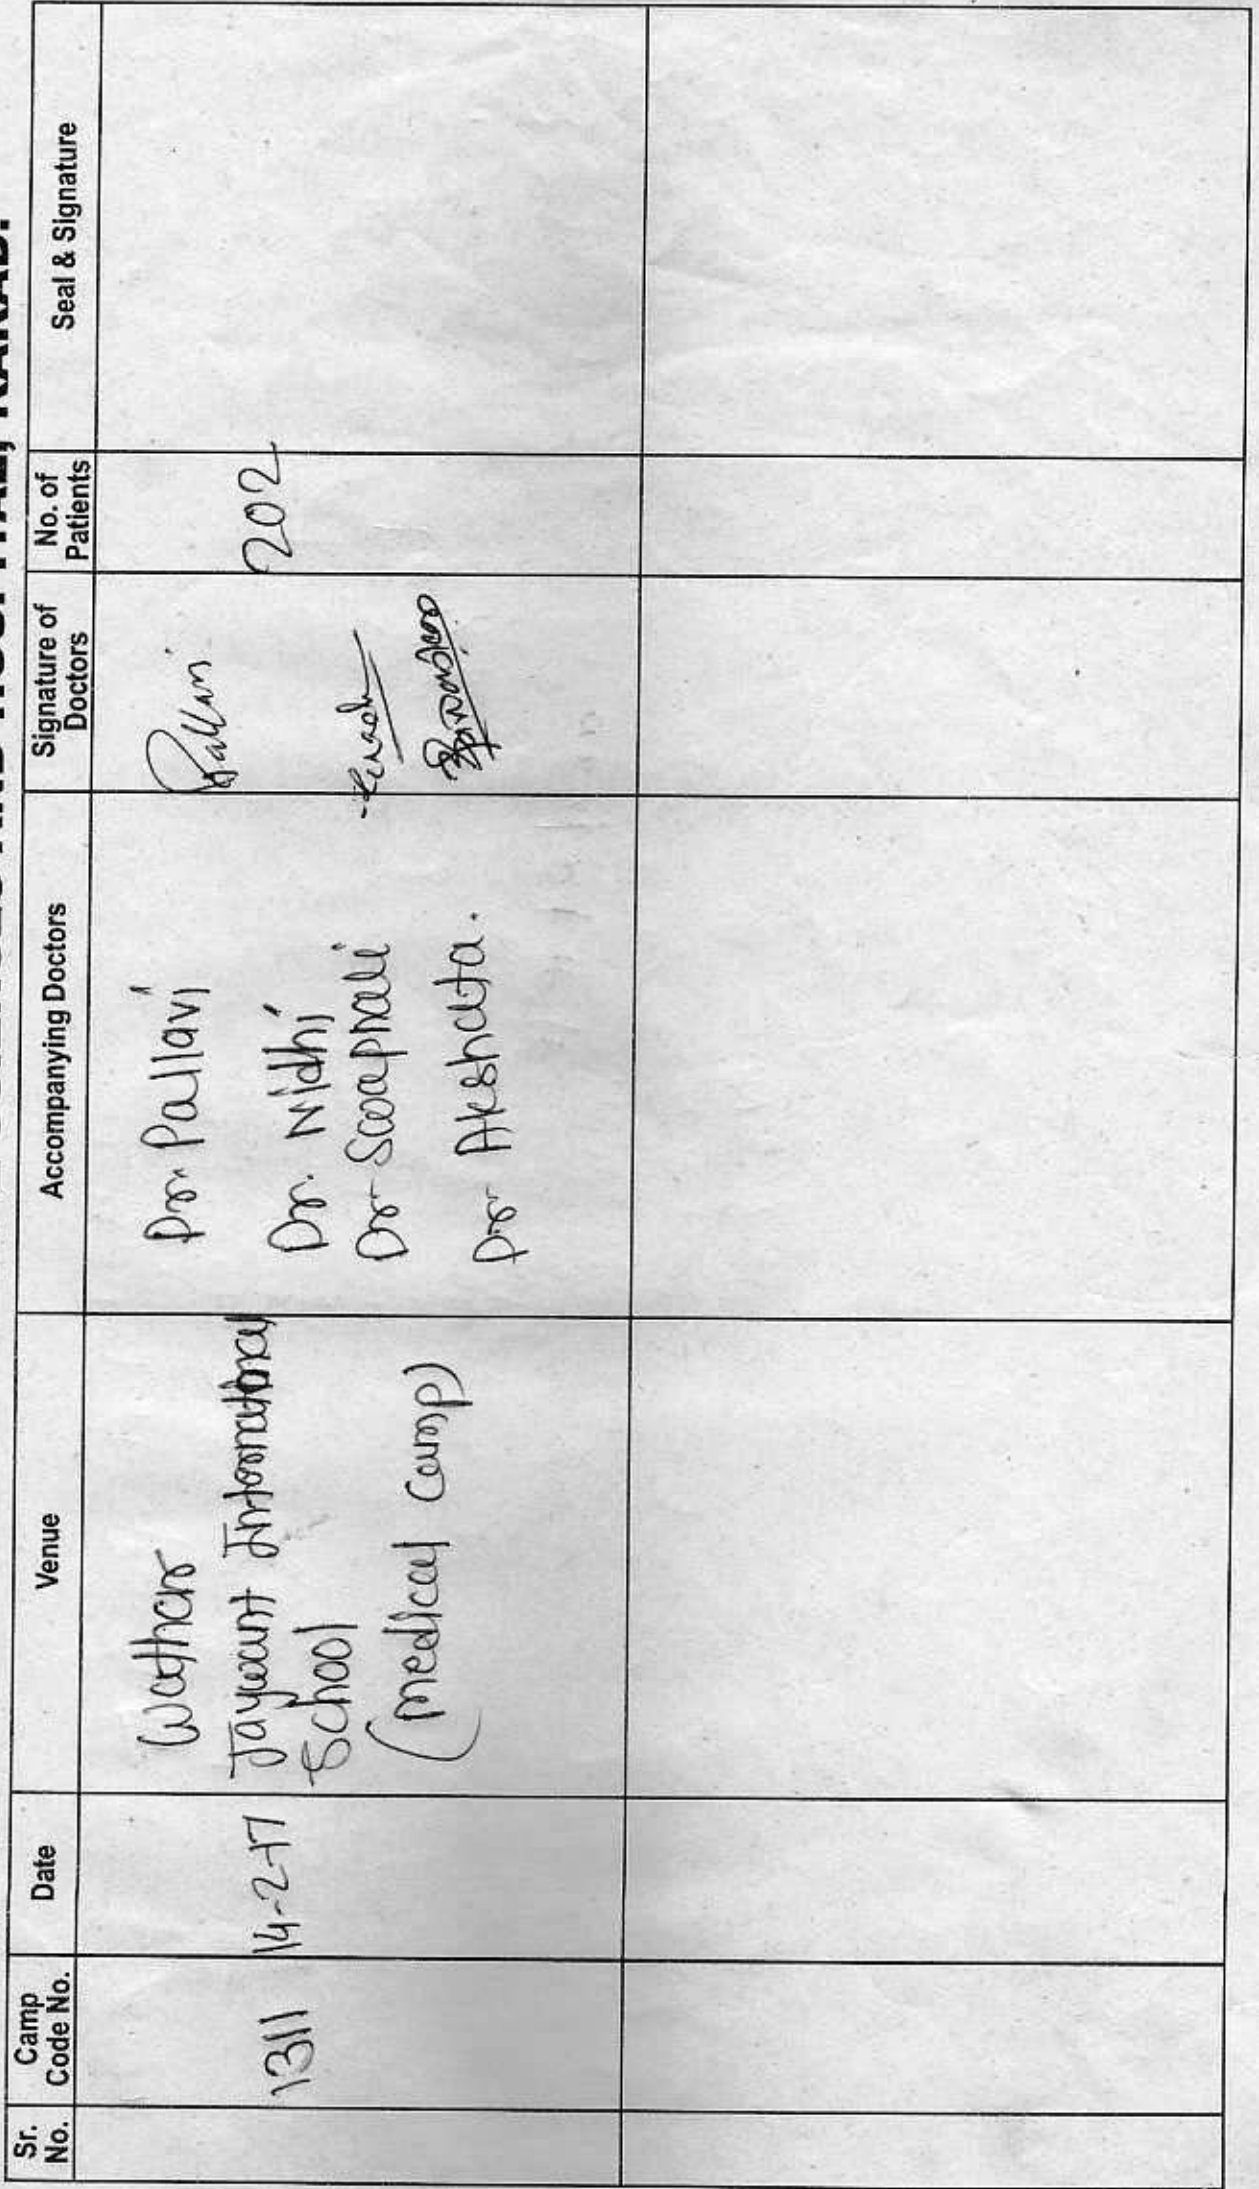 AND HOSPITAL, KARAD.
Sr. No.
Camp Code No.
Date
Venue
Accompanying Doctors
Signature of Doctors
No. of Patients
Seal & Signature
1311
14-2-17
Wathar
Jaywant International
School
(Medical Camp)
Dr. Pallavi
Dr. Nidhi
Dr. Swapnali
Dr. Akshata.
Pallavi
202